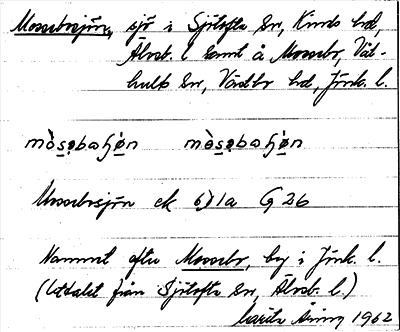 Mossebosjön, sjö i Sjötofta sn, Kinds hd,
Älvsb. l. samt å Mossebo, Vät-
hults sn, Västbo hd, Jönk. l.
mòsobaʃön mòsobaʃön
Mossebosjön ek 6J1a G 26
Namnet efter Mossebo, by i Jönk. l.
(Uttalet från Sjötofta sn, Älvsb. l.)
1962